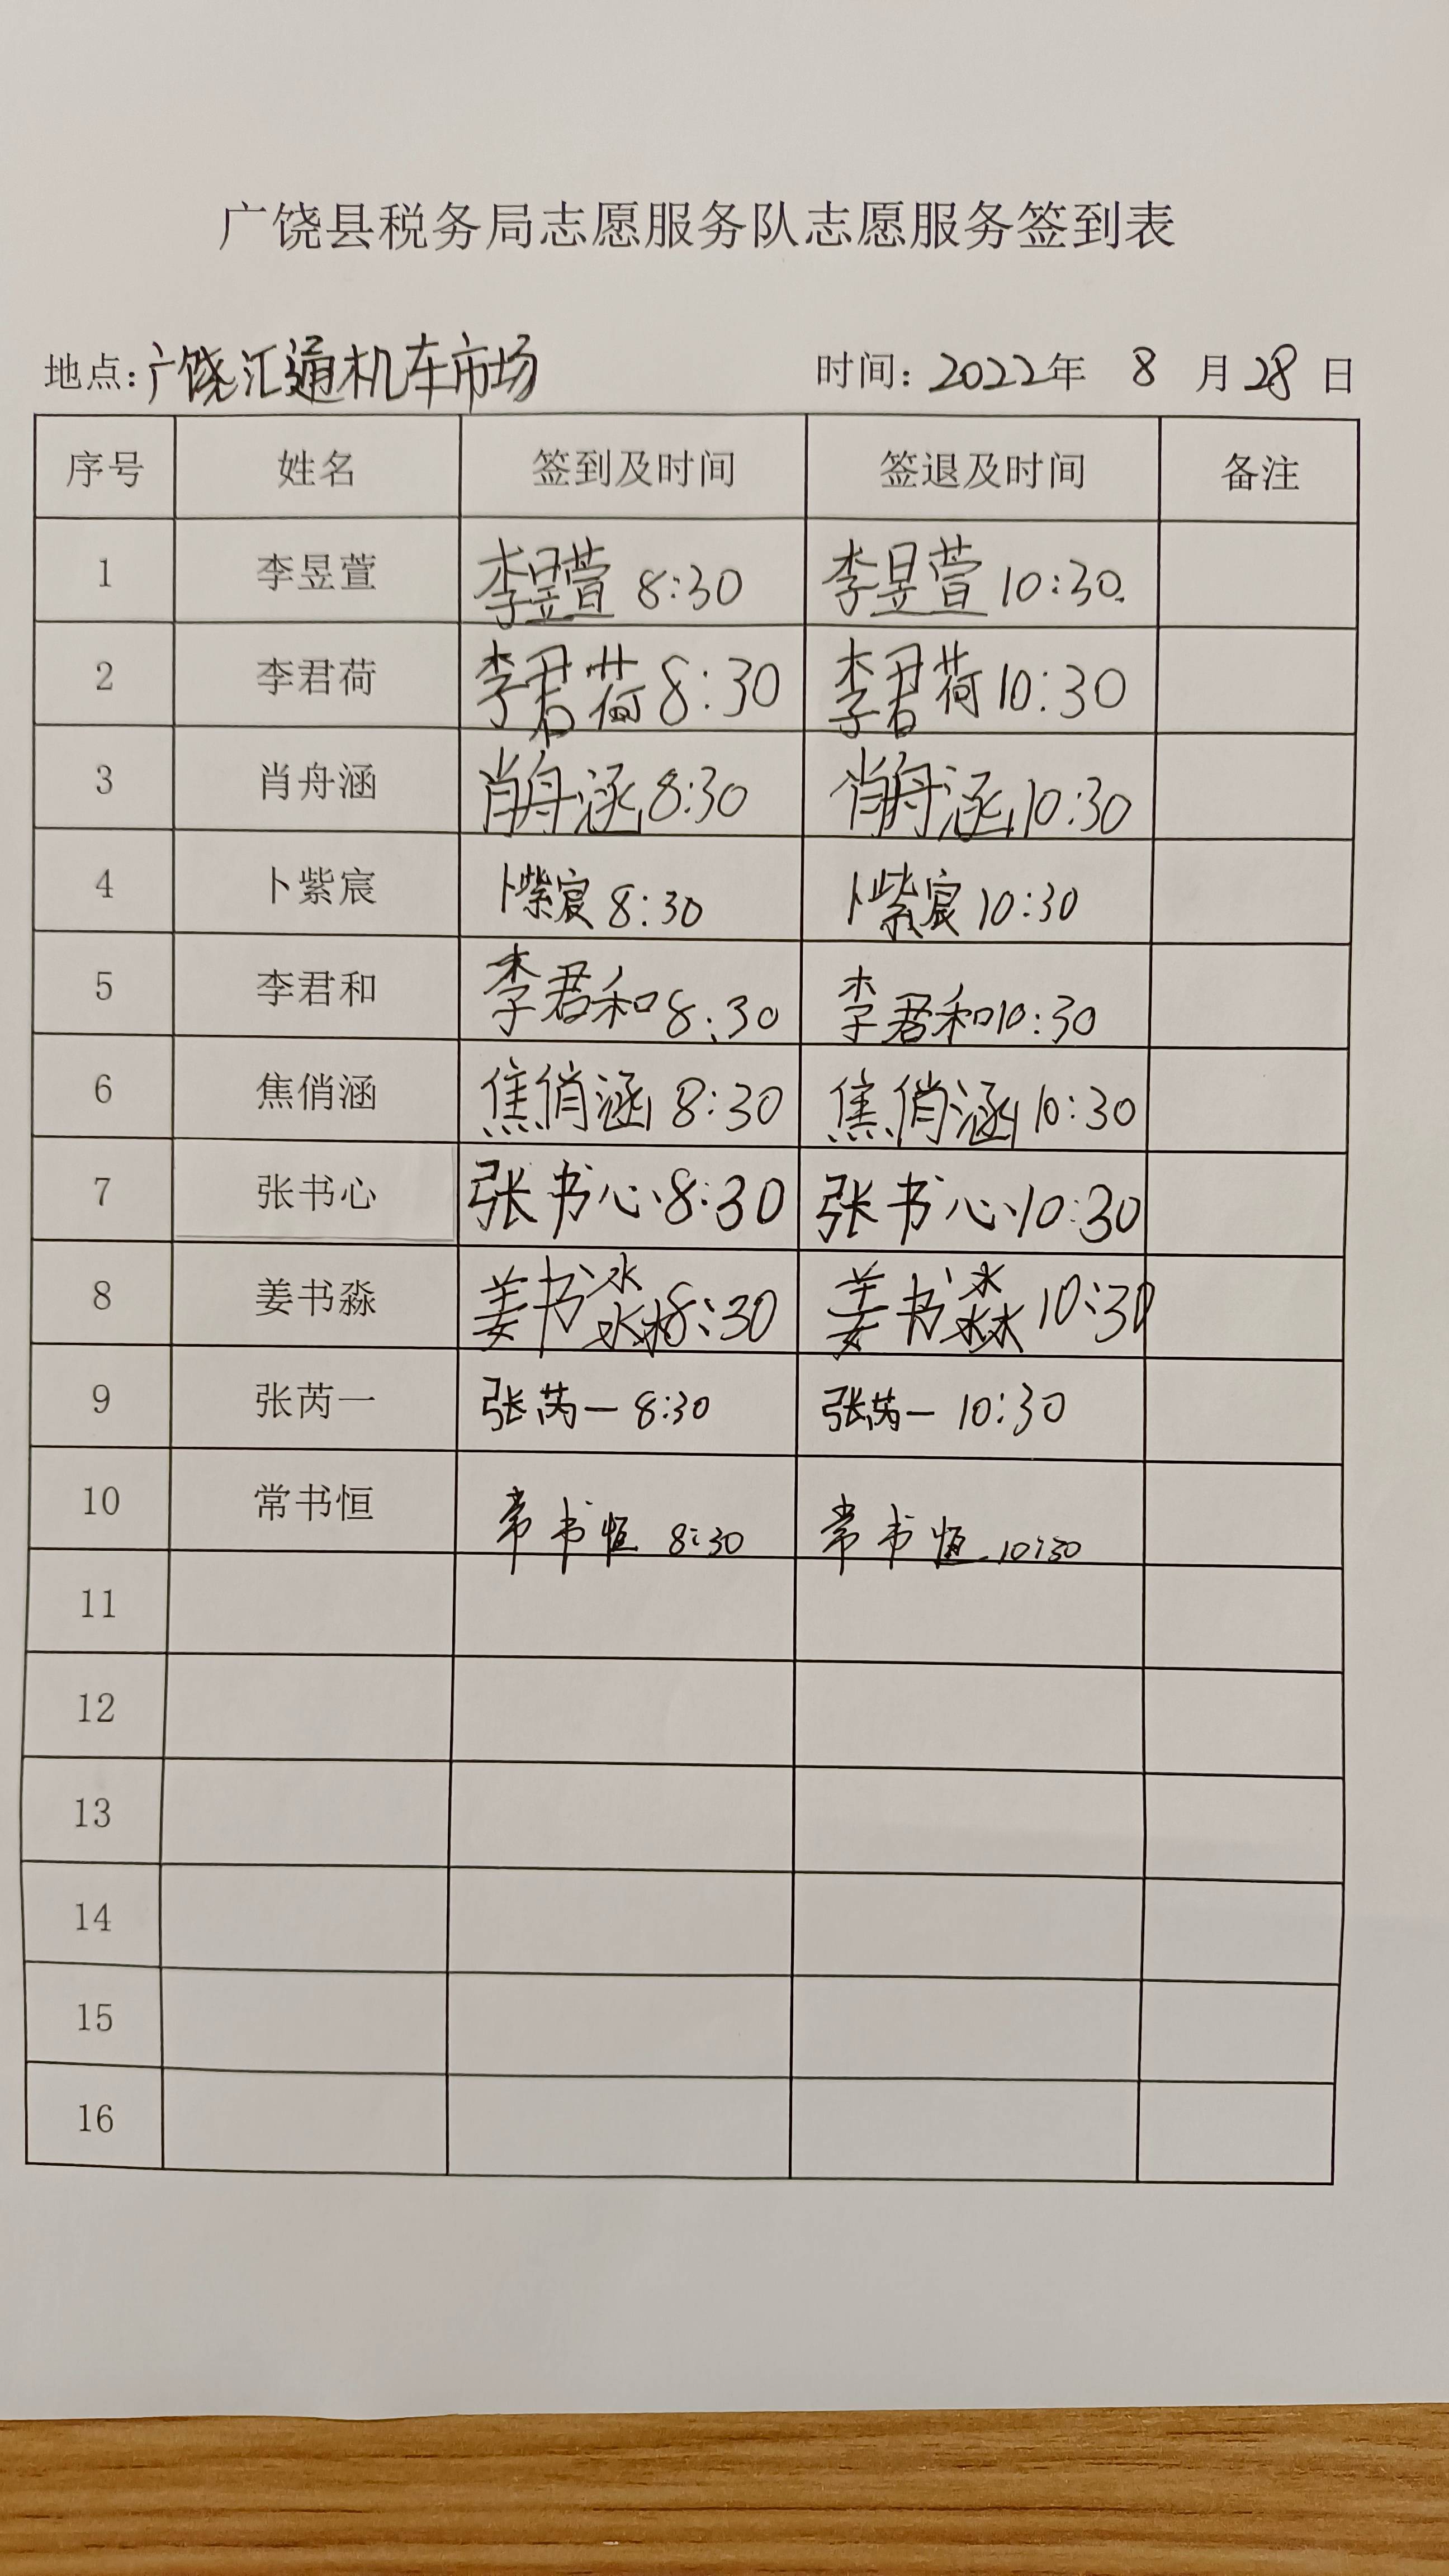 广饶县税务局志愿服务队志愿服务签到表
地点：广饶汇通机车市场 时间：2022年 8 月 28 日
序号 姓名 签到及时间 签退及时间 备注
1 李昱萱 李昱萱 8:30 李昱萱 10:30
2 李君荷 李君荷 8:30 李君荷 10:30
3 肖舟涵 肖舟涵 8:30 肖舟涵 10:30
4 卜紫宸 卜紫宸 8:30 卜紫宸 10:30
5 李君和 李君和 8:30 李君和 10:30
6 焦俏涵 焦俏涵 8:30 焦俏涵 10:30
7 张书心 张书心 8:30 张书心 10:30
8 姜书淼 姜书淼 8:30 姜书淼 10:30
9 张芮一 张芮一 8:30 张芮一 10:30
10 常书恒 常书恒 8:30 常书恒 10:30
11
12
13
14
15
16